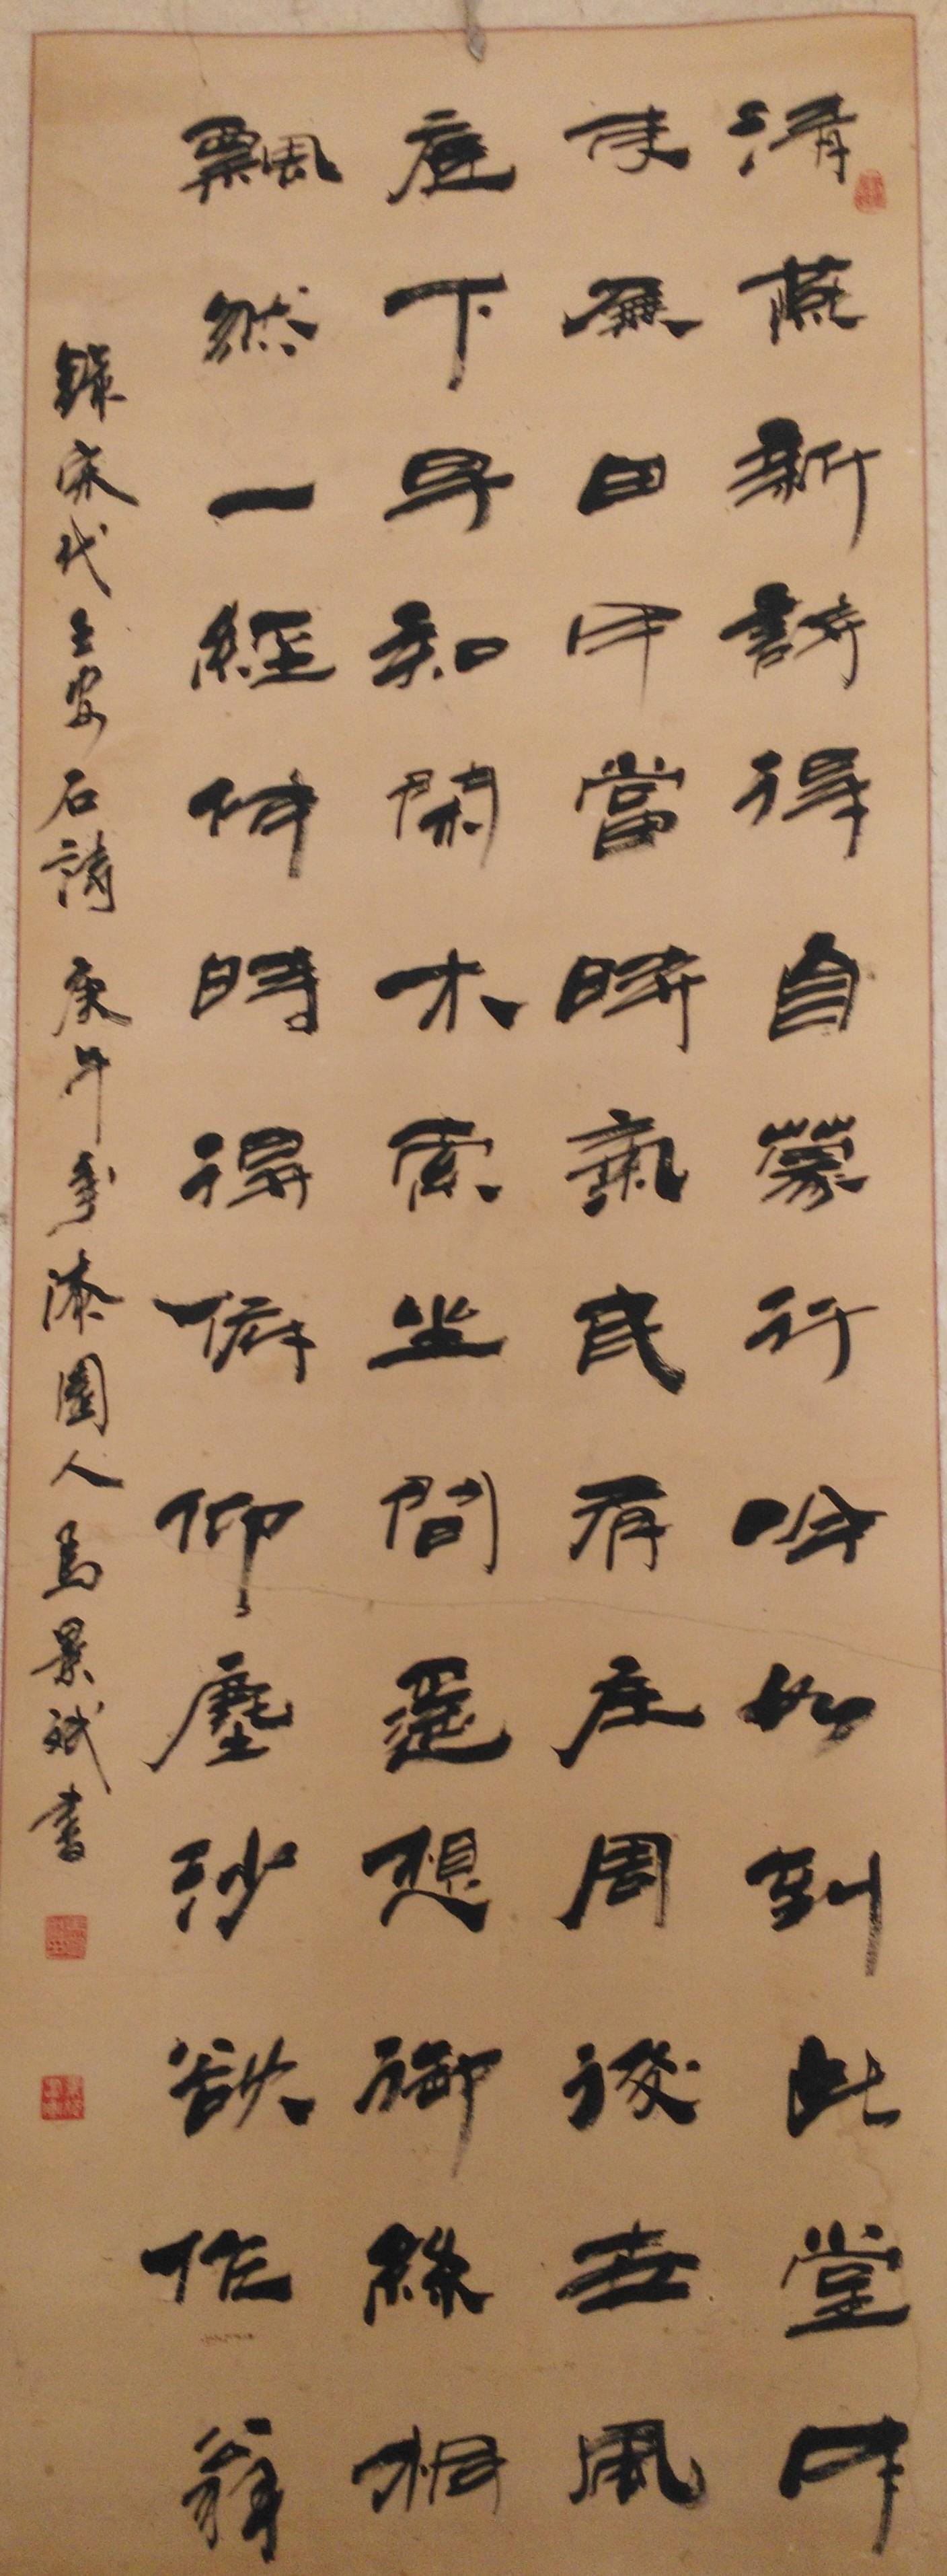 清燕新詩得自蒙行吟如到此堂中
吏無田甲當時氣民有庄周後世風
庭下早知閑木索坐間還想御絲桐
飄然一經何時得俯仰塵沙欲作翁
錄宋代王安石詩庚午秊漆園人馬景斌書